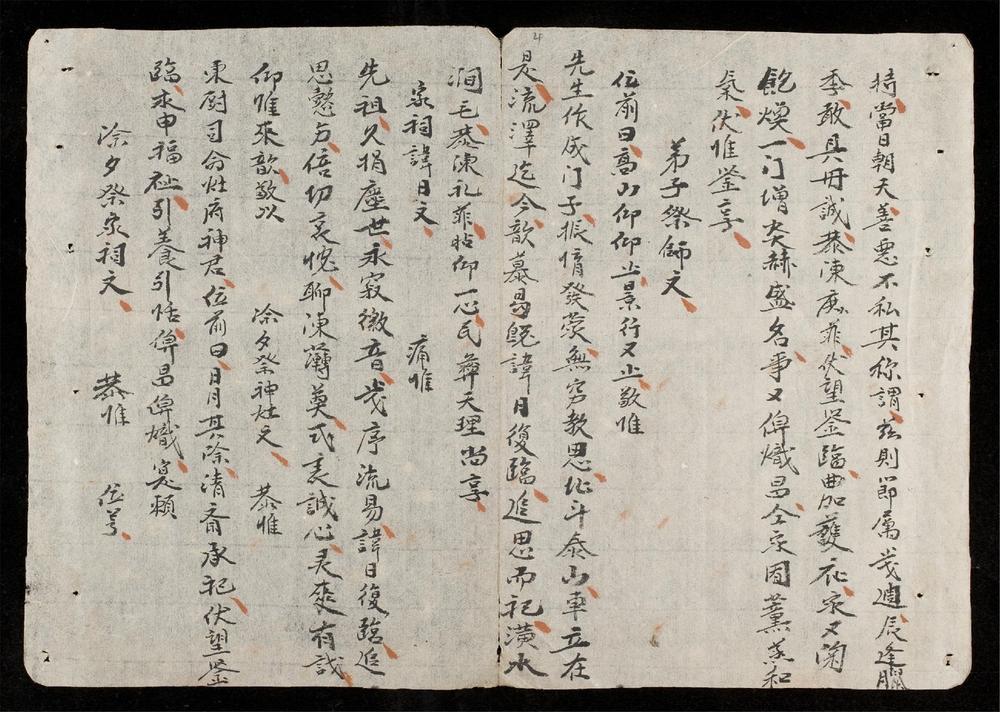 持當日朝天善惡不私其称謂茲則節属歲週辰逢臘
季敢具丹誠恭陳庶菲伏望鉴臨曲加護衣家又蘭
飽煖一门增炎赫盛名事又俾熾昌仝家固薰蒸和
氣伏惟鉴享
弟子祭師文
位前曰高山仰仰止景行又止敬唯
先生作成门子振惰發蒙無穷教思北斗泰山卓立在
是流澤迄今歆慕曷既諱日復臨追思而祀潢水
澗毛恭陳礼菲帖仰一心民彞天理尚享
家祠諱日文 痛惟
先祖久捐塵世永寂徽音歲序流易諱日復臨追
思慤方倍切哀悅聊陳薄奠式表誠心灵爽有誠
仰惟來歆敬以 冷夕祭神灶文 恭惟
東厨司命灶府神君位前曰日月其除清斋承祀伏望鉴
臨永申福祉引養引恬俾昌俾熾寔頼
冷夕祭家祠文 恭惟 位等